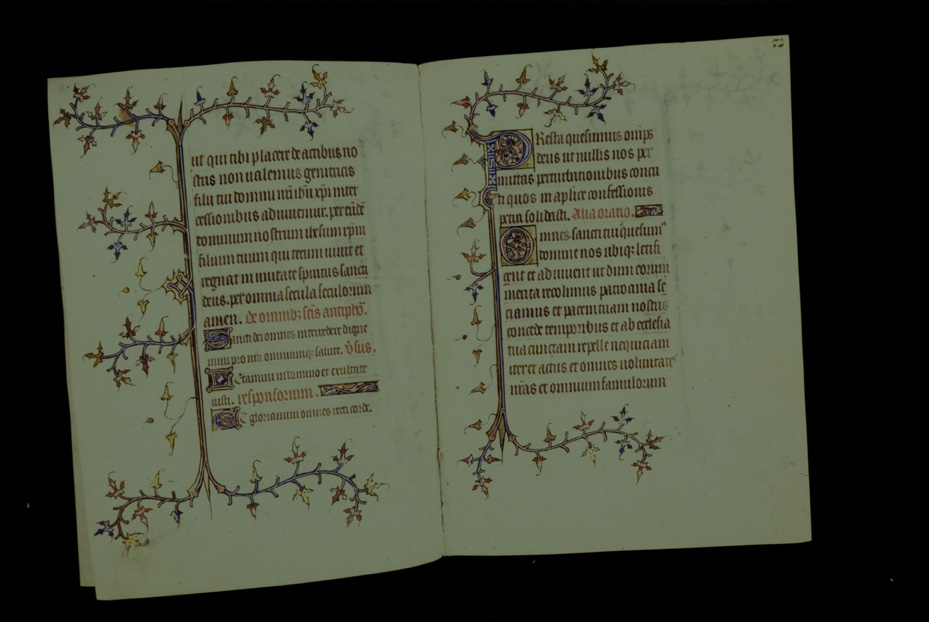 ut qui tibi placere de actibus no
stris non ualemus genitricis
filii tui domini nr̄i ihū xp̄i inter
cessionibus adiuuemur. per eūdē
dominum nostrum ihesum xp̄m
filium tuum qui tecum uiuit et
regnat in unitate spiritus sancti
deus. per omnia secula seculorum
amen. De omnibz sc̄is antipho.
Sancti dei omnes intercedere digne
mini pro nr̄a omniumqz salute. v̄sus.
Letamini in domino et exultate
iusti. responsorium.
Et gloriamini omnes recti corde.
72
PResta quesumus omp̄s
deus ut nullis nos per
mittas perturbationibus concu
ti quos in aplice confessionis
petra solidasti. Alia oratio.
Omnes sancti tui quesum
domine nos ubiqz letifi
cent et adiuuent ut dum eorum
merita recolimus patrocinia se
ciamus et pacem tuam nostris
concede temporibus et ab ecclesia
tua cunctam repelle nequiciam
iter et actus et omnes uoluntate
nr̄as et omnium famulorum